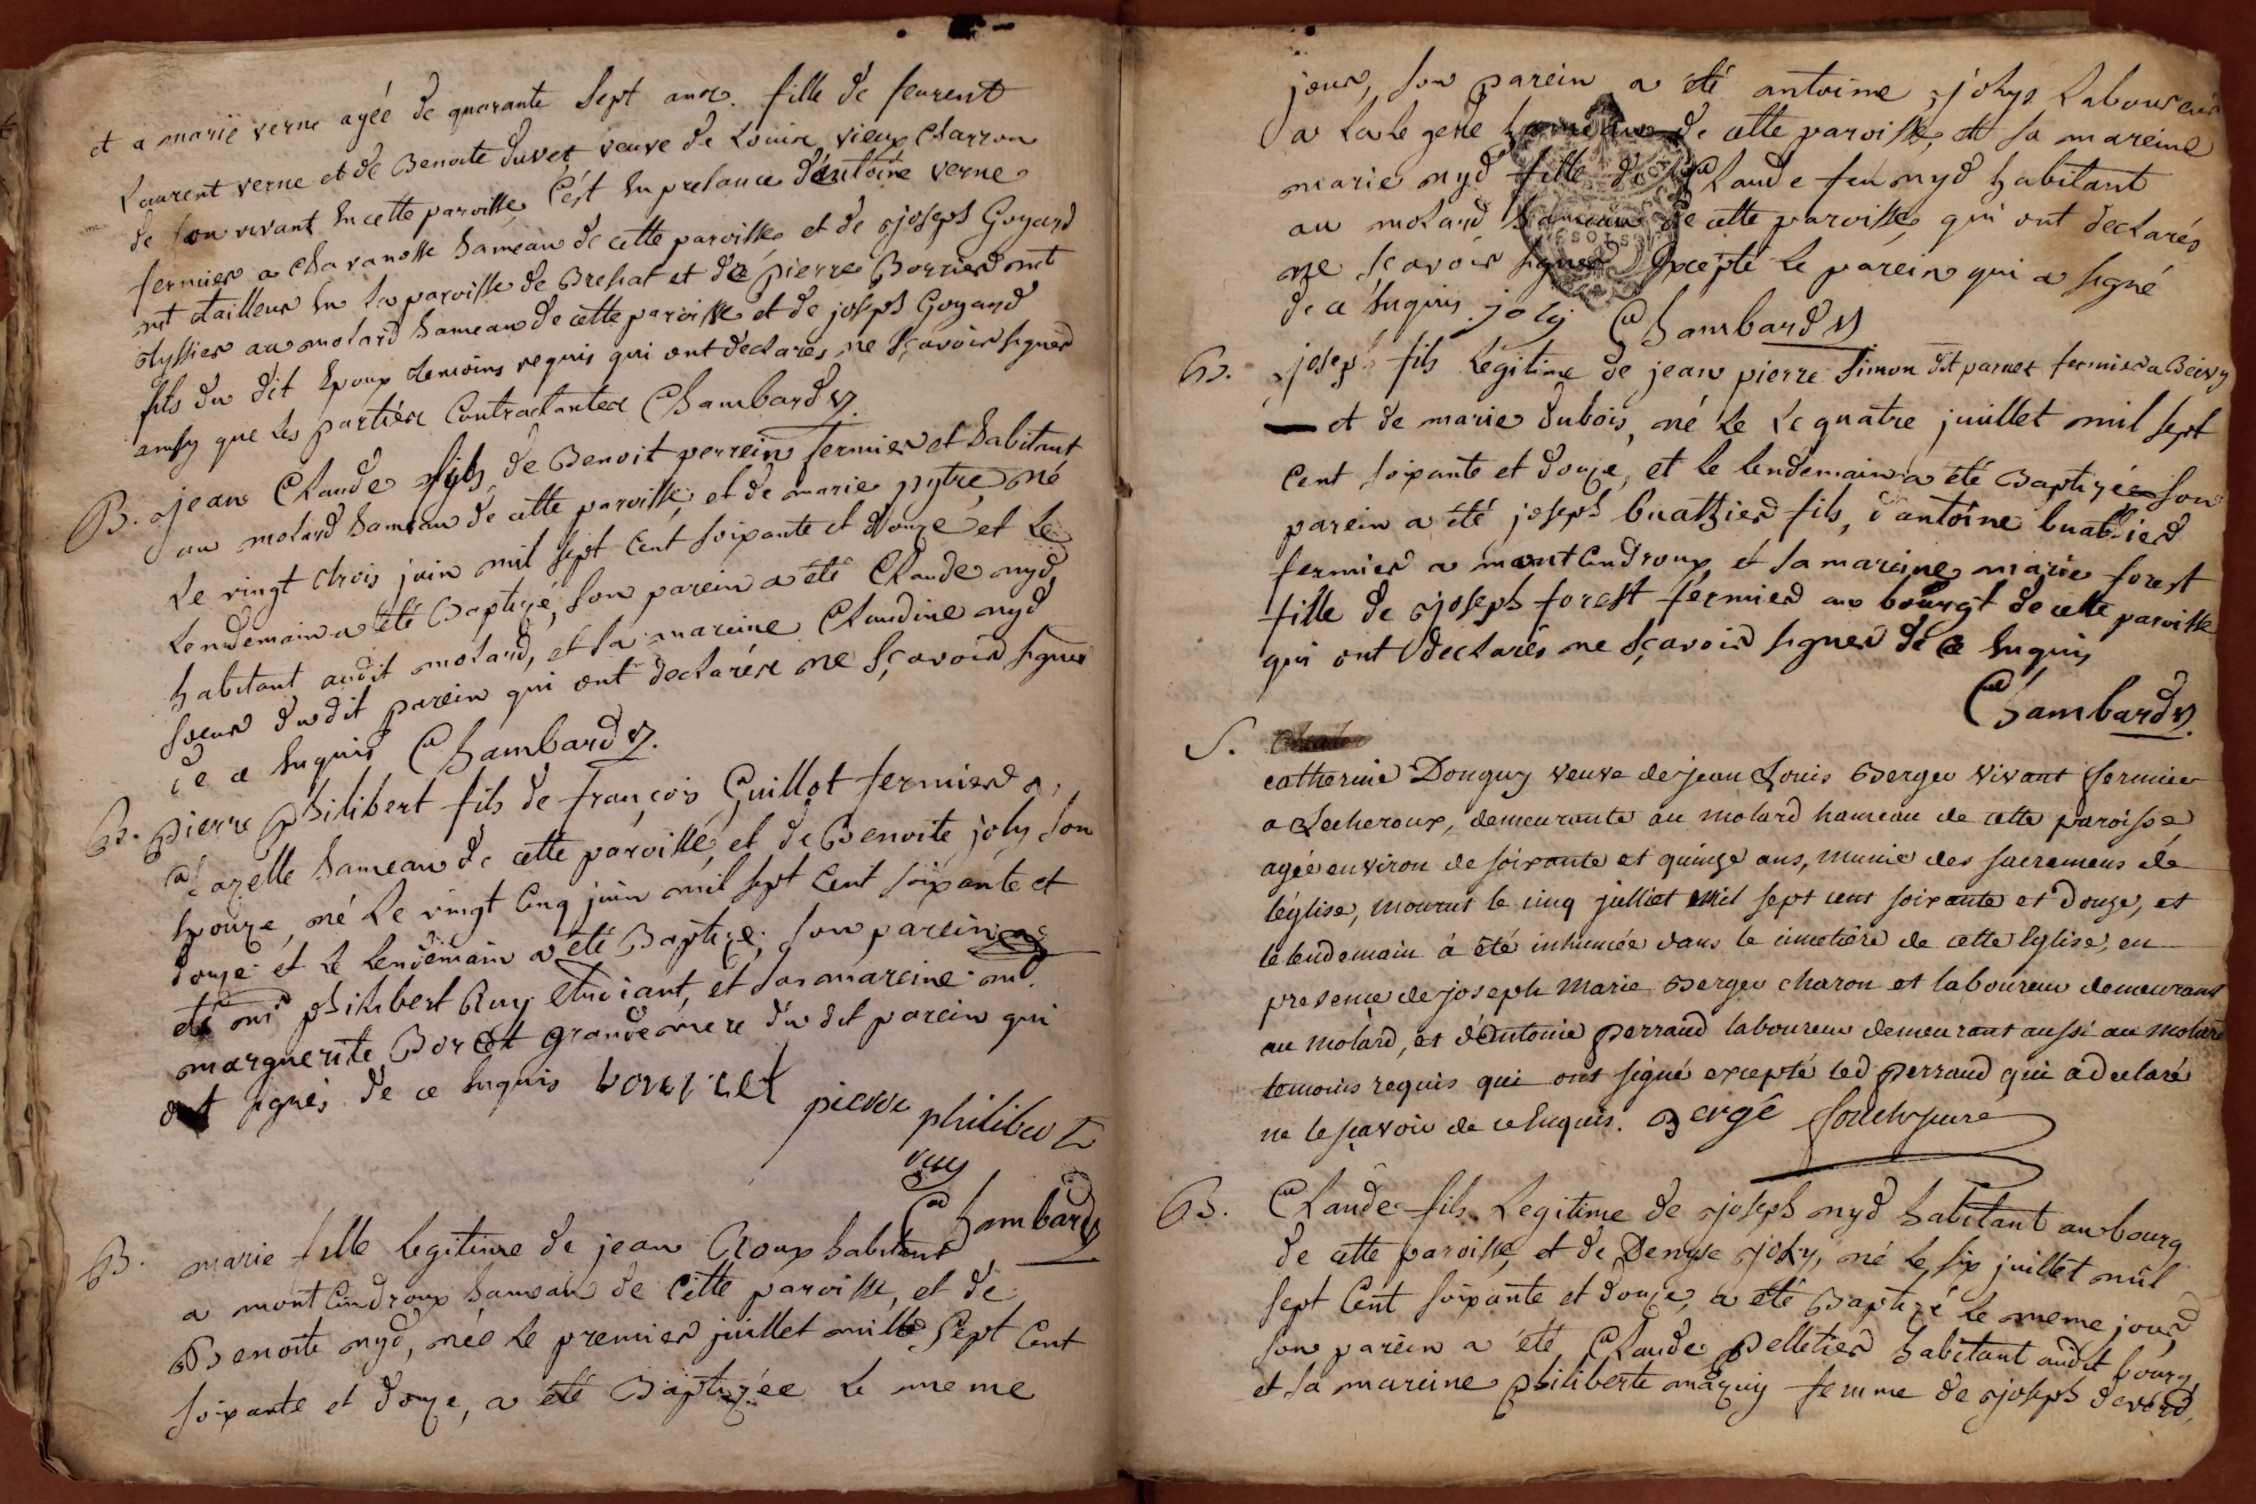 et a marie verne agée de quarante sept ans. fille de feurent
Laurent verne et de Benoite duvet, veuve de Louis vieux Charron
de son vivant en cette paroisse, C'est en presence d'antoine verne
fermier a Chavanosse hameau de cette paroisse et de joseph Goyard
mt tailleur en la paroisse de et de pierre Borrier mt
tyssier au molard hameau de cette paroisse et de joseph Goyard
fils du dit Epoux temoins requis qui ont declares ne sçavoir signer
ainsy que les parties Contractantes Chambard v.
B. jean Claude fils de Benoit perrein fermier et habitant
au molard hameau de cette paroisse, et de marie pytre, né
Le vingt trois juin mil sept Cent soixante et douze et le
Lendemain a été Baptizé, son parein a été Claude nyd
habitant audit molard, et la mareine Claudine nyd
soeur dudit parein qui ont declarés ne sçavoir signer
de ce Enquis Chambard v.
B. pierre philibert fils de françois Guillot fermier a
Chazelle hameau de cette paroisse, et de Benoite joly son
Epouze, né Le vingt Cinq juin mil sept Cent soixante et
douze et le Lendemain a été Baptizé, son parein a
été mr philibert Ruy Etudiant, et sa mareine md.
marguerite grande mere du dit parein qui
ont signés de ce Enquis
pierre philibert
ruy
Chambard v
B. marie fille legitime de jean Roux habitant
a montCindroux hameau de Cette paroisse, et de
Benoite nyd, née Le premier juillet mille sept Cent
soixante et douze, a été Baptizée Le meme
jour, son parein a été antoine joly Laboureur
a hameau de cette paroisse, et sa mareine
marie nyd fille de Claude feu nyd habitant
au molard hameau de cette paroisse, qui ont declarés
ne sçavoir signer Excepté Le parein qui a signé
de ce Enquis. joly Chambard v
B. joseph fils Legitime de jean pierre Simon dit parnet fermier a
et de marie dubois, né Le Le quatre juillet mil sept
Cent soixante et douze, et le lendemain a été Baptizée son
parein a été joseph buathier fils, d'antoine buathier
fermier a montCindroux et sa mareine marie forest
fille de joseph forest fermier au bourgt de cette paroisse
qui ont declarés ne sçavoir signer de ce Enquis
Chambard v.
S.
catherine Donguy veuve de jean Louis Berger vivant fermier
a Lecheroux, demeurante au molard hameau de cette paroisse
agée environ de soixante et quinze ans, munie des sacremens de
l'église, mourut le cinq julliet mil sept cens soixante et douze, et
le lendemain à été inhumée dans le cimetière de cette Eglise, en
presence de joseph Marie Berger charon et laboureur demeurant
au molard, et d'Antoine perraud laboureur demeurant aussi au molard
temoins requis qui ont signé excepté led perraud qui a declaré
ne le sçavoir de ce Enquis. Bergé
B. Claude fils Legitime de joseph nyd habitant au bourg
de cette paroisse, et de Denyse joly, né Le six juillet mil
sept Cent soixante et douze, a été Baptizé Le meme jour
son parein a été Claude pelletier habitant audit bourg,
et sa mareine philiberte femme de joseph